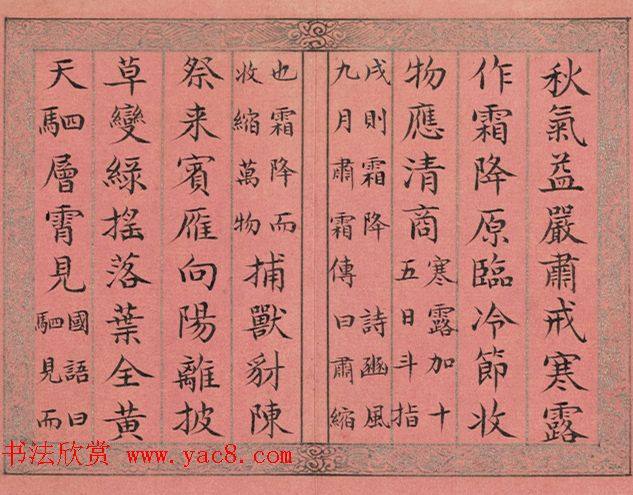 秋氣益嚴肅戒寒露
作霜降原臨冷節收
物應清商寒露加十五日斗指
戌則霜降 詩豳風九月肅霜傳曰肅縮
也霜降而收縮萬物捕獸豺陳
祭来賓雁向陽離披
草變綠搖落葉全黃
天駟層霄見國語曰駟見而
书法欣赏 www.yac8.com